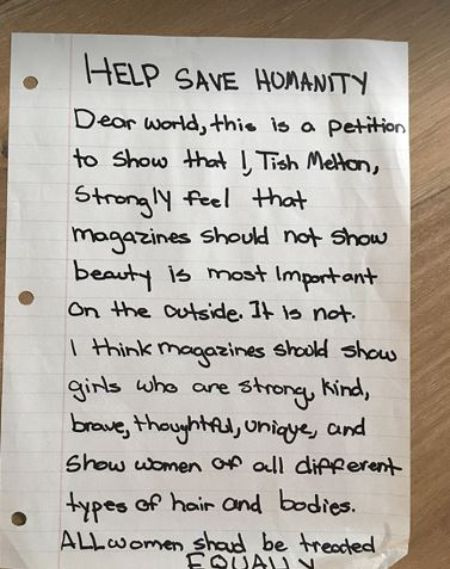 HELP SAVE HUMANITY
Dear world, this is a petition
to show that I, Tish Melton,
Strongly feel that
magazines should not show
beauty is most Important
on the outside. It is not.
I think magazines should show
girls who are strong, kind,
brave, thoughtful, unique, and
show women of all different
types of hair and bodies.
ALL women shoud be treated
EQUALLY